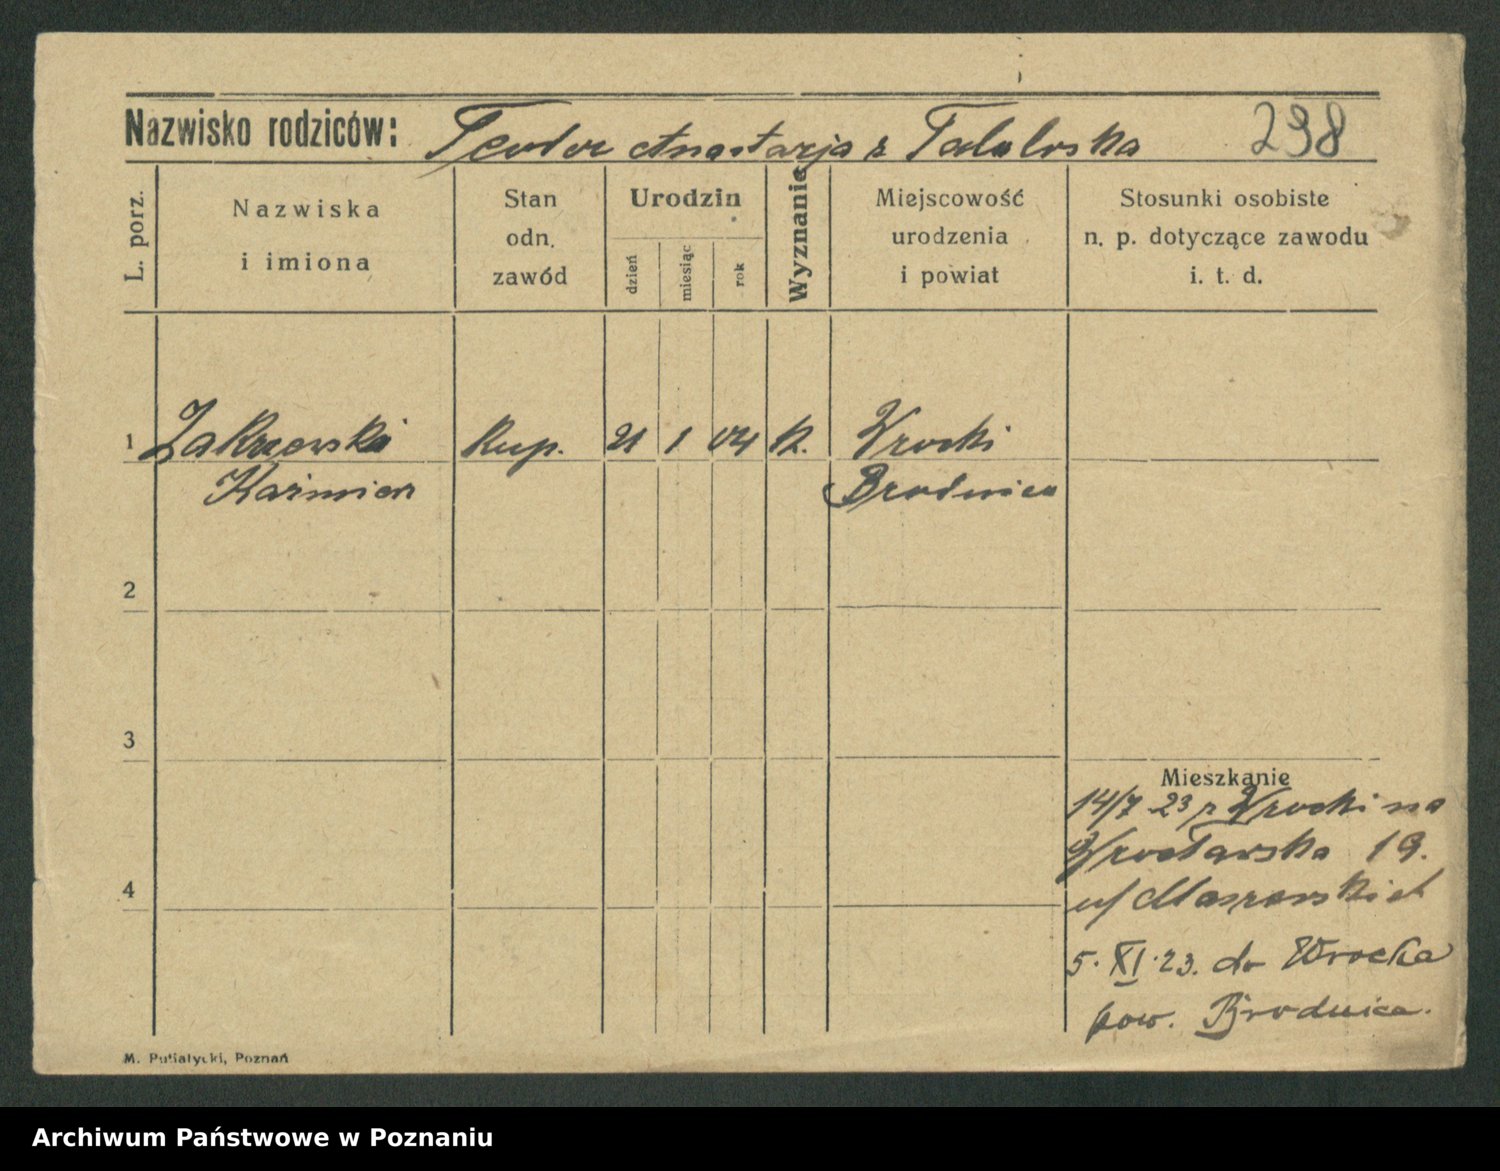 Nazwisko rodziców: Teodor Anastazja z 298
L. porz.
Nazwiska i imiona
Stan odn. zawód
Urodzin
dzień
miesiąc
rok
Wyznanie
Miejscowość urodzenia i powiat
Stosunki osobiste n. p. dotyczące zawodu i. t. d.
1 Zakrzewski kup. 21 1 04 k. Wrocki
Kazimierz Brodnica
2
3
Mieszkanie
14/7 23 z Wrocki na
Wrocławska 19.
4
5. XI. 23. do Wrocka
pow. Brodnica.
M. Putiatycki, Poznań
Archiwum Państwowe w Poznaniu